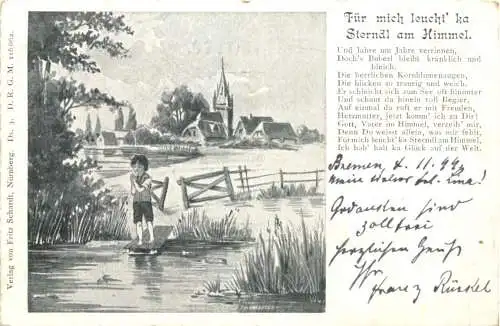 Für mich leucht' ka
Sterndl am Himmel.
Und Jahre um Jahre verrinnen,
Doch's Buberl bleibt kränklich und
bleich.
Die herrlichen Kornblumenaugen,
Die blicken so traurig und weich.
Er schleicht sich zum See oft hinunter
Und schaut da hinein voll Begier,
Auf einmal da ruft er mit Freuden,
Herzmutter, jetzt komm' ich zu Dir!
Gott, Vater im Himmel, verzeih' mir,
Denn Du weisst allein, was mir fehlt,
Für mich leucht' ka Sterndl am Himmel,
Ich hab' halt ka Glück auf der Welt.
Bremen, 4. 11. 99
Mein
Gedanken sind
zollfrei
herzlichen Gruß
Ihr
Franz Rückel
Verlag von Fritz Schardt, Nürnberg. D. R. G. M.